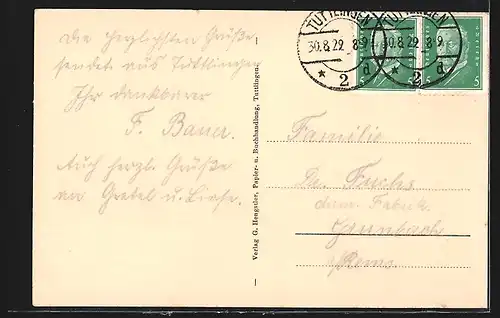 Die herzlichsten Grüße
sendet aus Tuttlingen
Ihr dankbarer
F. Bauer.
Auch herzl. Grüße
an Gretel u. Liesel.
Verlag G. Hengstler, Papier- u. Buchhandlung, Tuttlingen.
TUTTLINGEN
30.8.29. 8-9
* 2 d
TUTTLINGEN
30.8.29. 8-9
* 2 d
5
5
Familie
Fuchs
chem. Fabrik
Grunbach
Rems